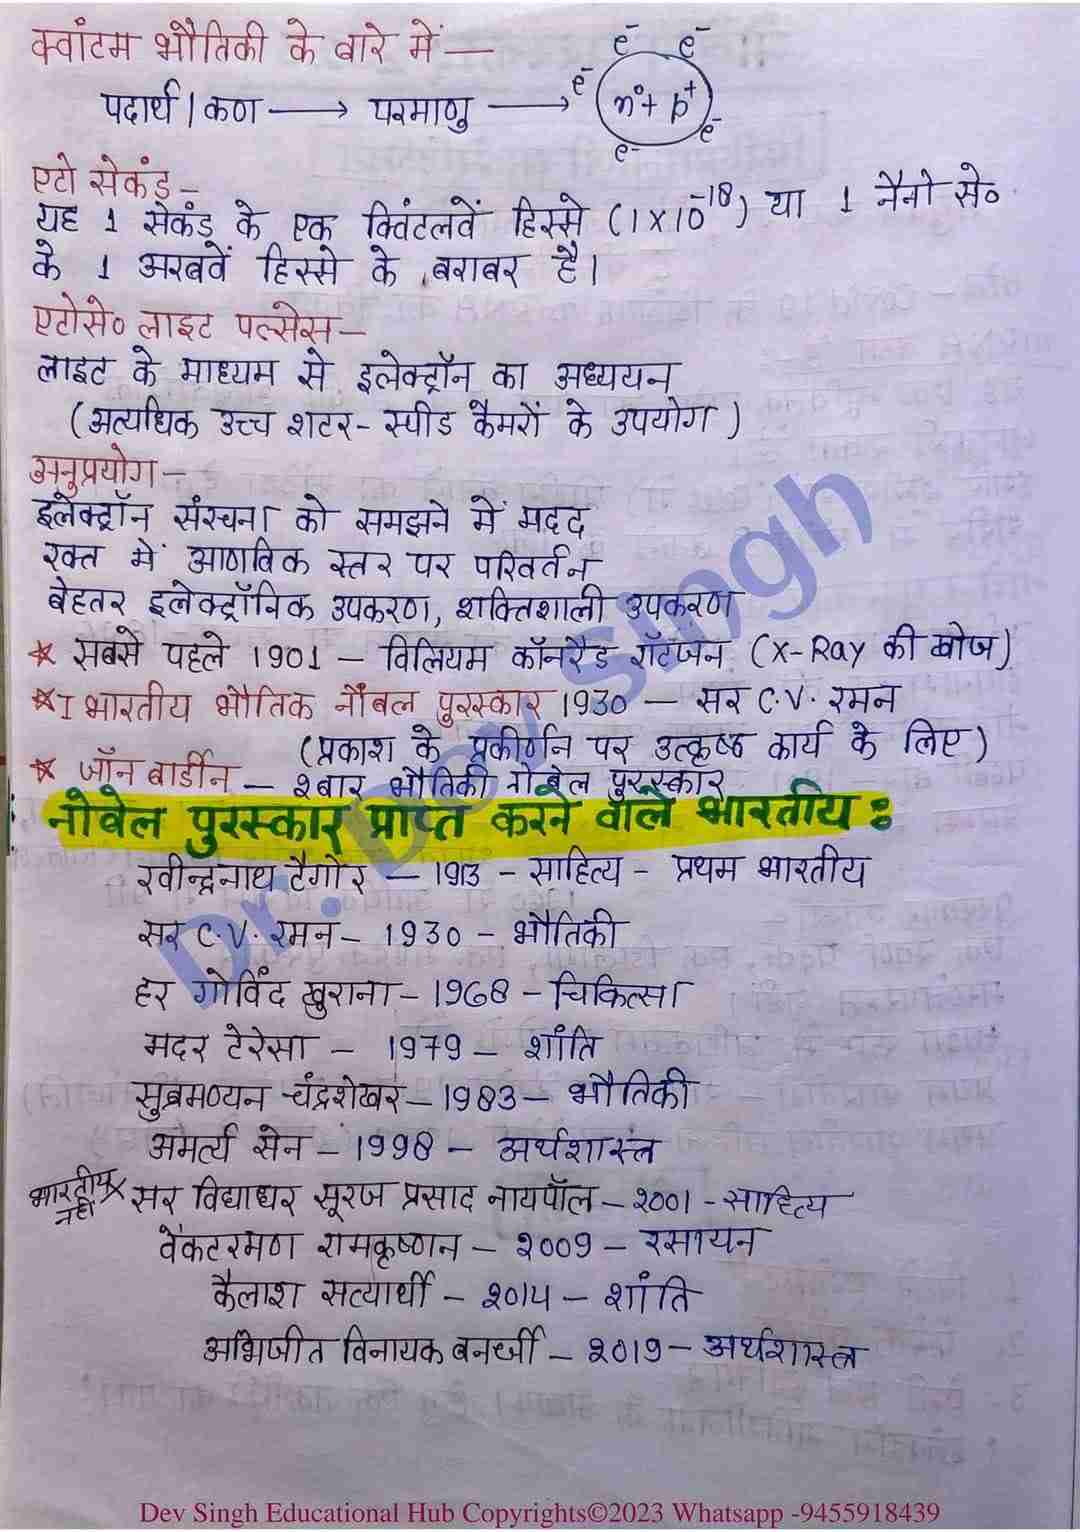 क्वांटम भौतिकी के बारे में —
पदार्थ/कण → परमाणु → n° + p⁺ e⁻ e⁻ e⁻ e⁻ e⁻
एटो सेकंड –
यह 1 सेकंड के एक क्विंटलवें हिस्से (1×10⁻¹⁸) या 1 नैनो से०
के 1 अरबवें हिस्से के बराबर है।
एटोसे० लाइट पल्सेस –
लाइट के माध्यम से इलेक्ट्रॉन का अध्ययन
(अत्यधिक उच्च शटर - स्पीड कैमरों के उपयोग)
अनुप्रयोग –
इलेक्ट्रॉन संरचना को समझने में मदद
रक्त में आणविक स्तर पर परिवर्तन
बेहतर इलेक्ट्रॉनिक उपकरण, शक्तिशाली उपकरण
* सबसे पहले 1901 – विलियम कॉनरैड रॉटजन (X-Ray की खोज)
* I भारतीय भौतिक नोबल पुरस्कार 1930 – सर C.V. रमन
(प्रकाश के प्रकीर्णन पर उत्कृष्ठ कार्य के लिए)
* जॉन बार्डीन – २बार भौतिकी नोबेल पुरस्कार
नोबेल पुरस्कार प्राप्त करने वाले भारतीय :
रवीन्द्रनाथ टैगोर – 1913 – साहित्य – प्रथम भारतीय
सर C.V. रमन – 1930 – भौतिकी
हर गोविंद खुराना – 1968 – चिकित्सा
मदर टेरेसा – 1979 – शांति
सुब्रमण्यन चंद्रशेखर – 1983 – भौतिकी
अमर्त्य सेन – 1998 – अर्थशास्त्र
भारतीय नहीं × सर विद्याधर सूरज प्रसाद नायपॉल – २००1 – साहित्य
वेंकटरमण रामकृष्णन – २००9 – रसायन
कैलाश सत्यार्थी – २०14 – शांति
अभिजीत विनायक बनर्जी – २०19 – अर्थशास्त्र
Dr. Dev Singh
Dev Singh Educational Hub Copyrights©2023 Whatsapp -9455918439